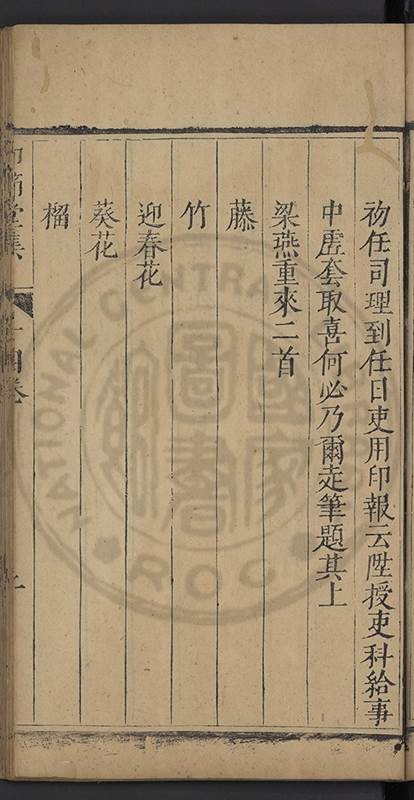 初任司理到任日吏用印報云陞授吏科給事
中虛套取喜何必乃爾走筆題其上
梁燕重來二首
藤
竹
迎春花
葵花
榴
節堂集
四卷
國家圖書
NATIONAL CENTRAL
R.O.C